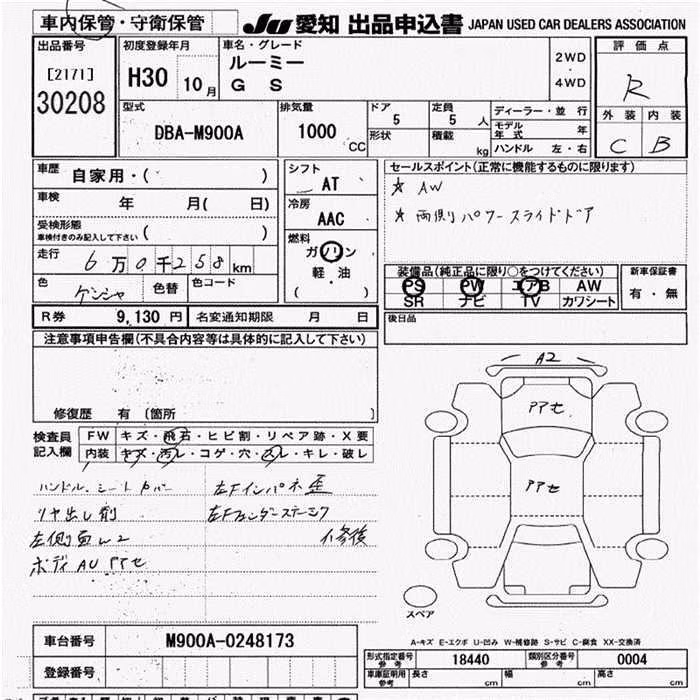 車内保管・守衛保管
JU 愛知 出品申込書 JAPAN USED CAR DEALERS ASSOCIATION
出品番号 初度登録年月 車名・グレード 評価点
[2171] ルーミー 2WD
30208 H30 10月 G S ・4WD R
型式 排気量 ドア 定員 ディーラー・並行 外装 内装
DBA-M900A 1000 CC 5 5人 モデル年式 年 C B
形状 積載 kg ハンドル 左・右
車歴 自家用・( ) シフト AT セールスポイント(正常に機能するものに限ります)
車検 年 月( 日) 冷房 AAC ☆ AW
受検形態 ( ) ☆ 両側パワースライドドア
車検付きのみ記入して下さい
走行 6万0千258km 燃料 ガソリン
軽・油
( )
色 ゲンシャ 色替 色コード
装備品(純正品に限り○をつけてください) 新車保証書
PS PW エアB AW 有・無
SR ナビ TV カワシート
R券 9,130円 名変通知期限 月 日 後日品
注意事項申告欄(不具合内容等は具体的に記入して下さい)
修復歴 有 〔箇所
検査員記入欄 FW キズ・飛石・ヒビ割・リペア跡・X要
内装 キズ・汚レ・コゲ・穴・スレ・キレ・破レ
ハンドル、シートカバー 左Fインパネ歪
リヤ出し削 左Fフェンダーステーミク
修復
ボディAUアアセ
A2
アアセ
アアセ
スペア
A-キズ E-エクボ U-凹み W-補修跡 S-サビ C-腐食 XX-交換済
車台番号 M900A-0248173
登録番号
形式指定番号 参考 18440 類別区分番号 参考 0004
車庫証明用 参考 長さ cm 幅 cm 高さ cm